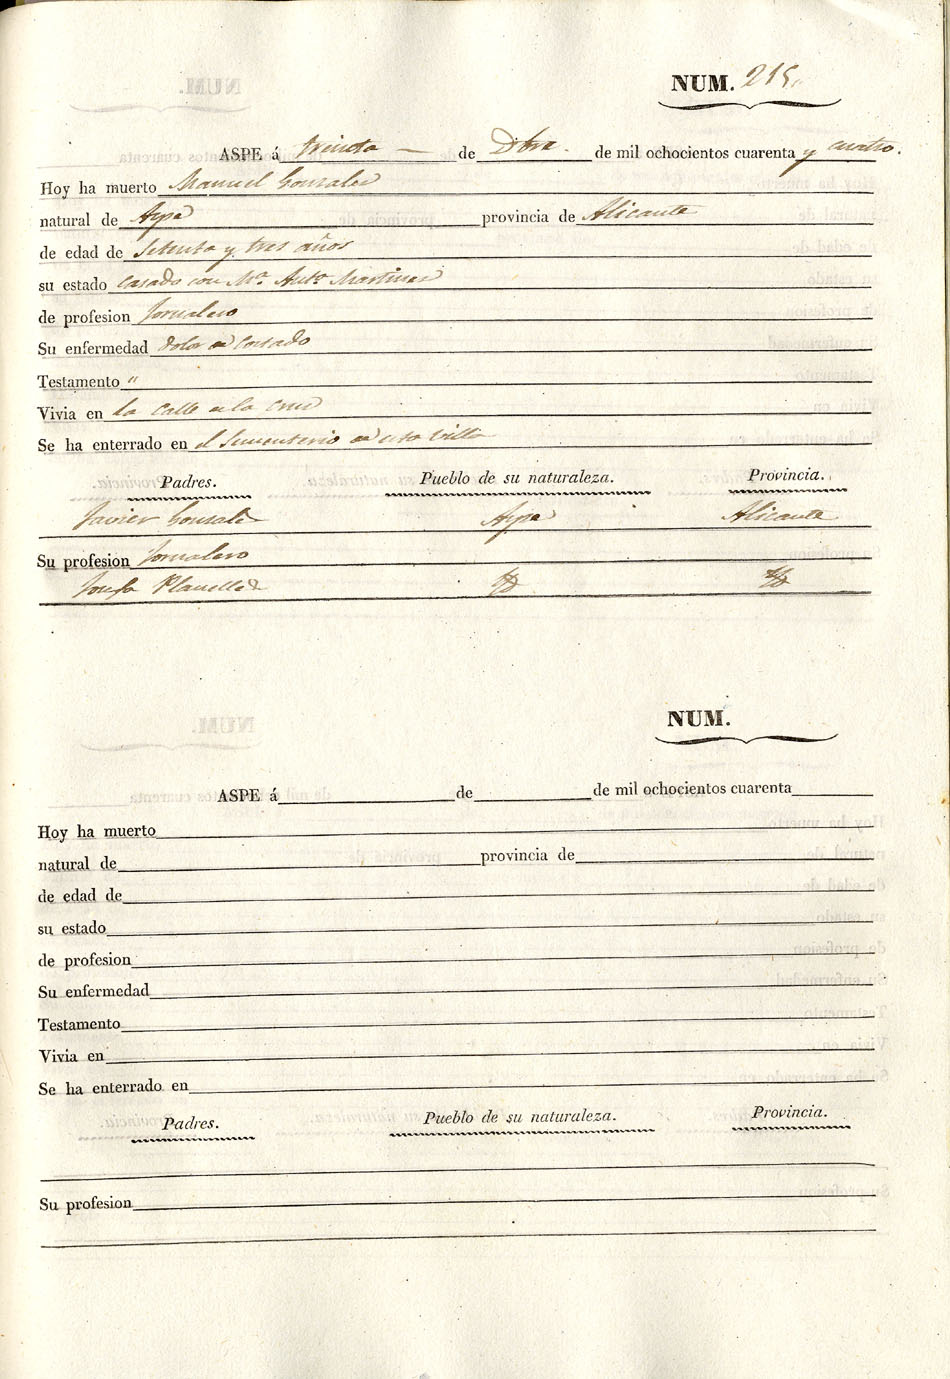 NUM. 215.
ASPE á treinta de Dbre. de mil ochocientos cuarenta y cuatro.
Hoy ha muerto Manuel Gonzalez
natural de Aspe provincia de Alicante
de edad de Setenta y tres años
su estado Casado con Mª. Antª Martinez
de profesion Jornalero
Su enfermedad dolor de Costado
Testamento "
Vivia en la calle de la Cruz
Se ha enterrado en el Sementerio de esta Villa
Padres. Pueblo de su naturaleza. Provincia.
Javier Gonzalez Aspe Alicante
Su profesion Jornalero
Josefa Planelles
NUM.
ASPE á de de mil ochocientos cuarenta
Hoy ha muerto
natural de provincia de
de edad de
su estado
de profesion
Su enfermedad
Testamento
Vivia en
Se ha enterrado en
Padres. Pueblo de su naturaleza. Provincia.
Su profesion